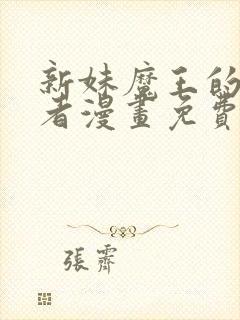 新妹魔王的
者漫畫免費
張霽